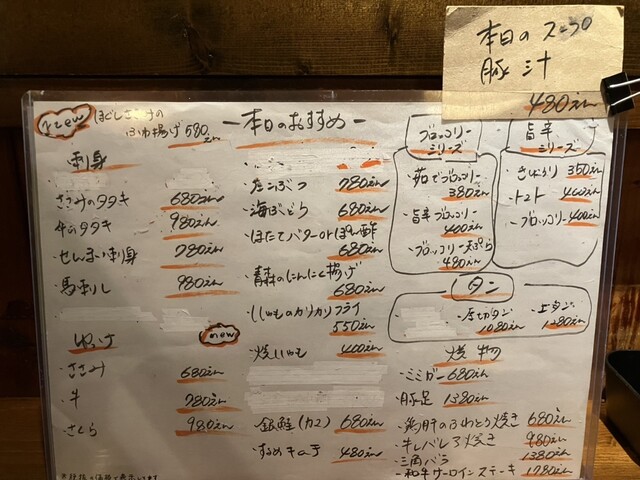 本日のスープ
豚汁
480えん
new ほぐしささみの
ふわ揚げ 580えん
-本日のおすすめ-
刺身
・ささみのタタキ 680えん
・牛のタタキ 980えん
・せんまい刺身 780えん
・馬刺し 980えん
ゆっけ
・ささみ 680えん
・牛 780えん
・さくら 980えん
・たこぶつ 780えん
・海ぶどう 680えん
・ほたてバターorぽん酢
680えん
・青森のにんにく揚げ
680えん
・ししゃものカリカリフライ
550えん
new
・焼ししゃも 400えん
・銀鮭(カマ) 680えん
・するめキムチ 480えん
ブロッコリー
シリーズ
・茹でブロッコリー
380えん
・旨辛ブロッコリー
400えん
・ブロッコリー天ぷら
480えん
旨辛
シリーズ
・きゅうり 350えん
・トマト 400えん
・ブロッコリー 400えん
タン
・厚切タン
1080えん
・上タン
1280えん
焼物
・ミミガー 680えん
・豚足 1380えん
・鶏肝のふわとろ焼き 680えん
・牛レバレア焼き 980えん
・三角バラ 1380えん
・和牛サーロインステーキ 1780えん